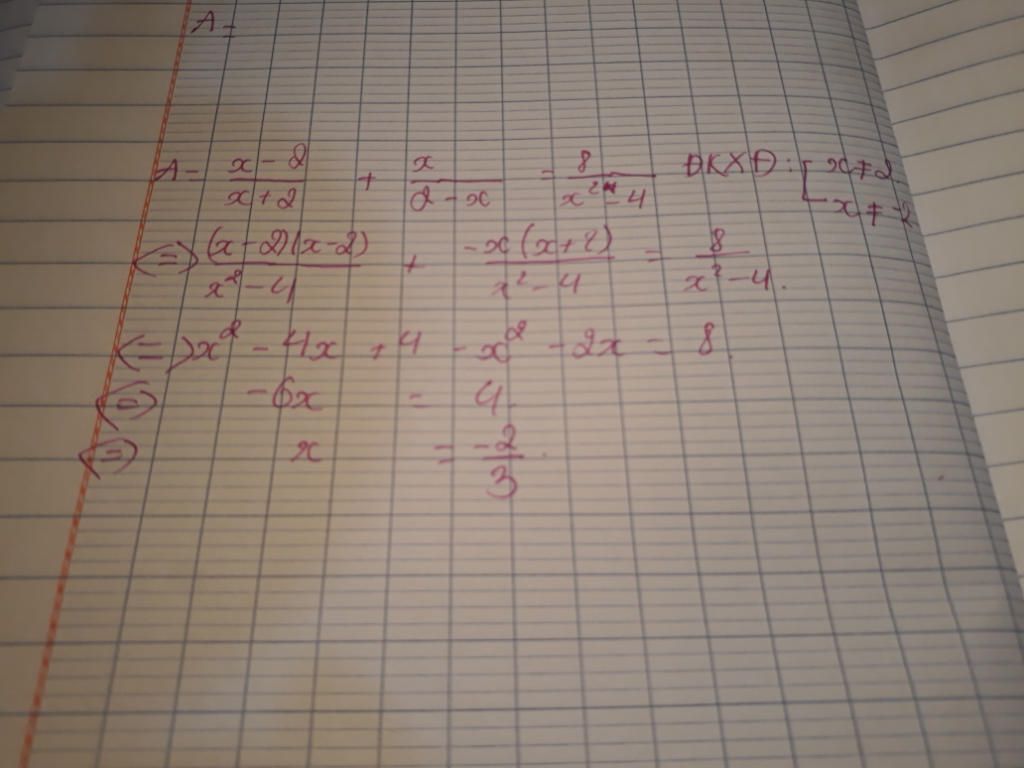 A =
A = \frac{x-2}{x+2} + \frac{x}{2-x} = \frac{8}{x^2-4} ĐKXĐ: [x ≠ 2
x ≠ -2
<=> \frac{(x-2)(x-2)}{x^2-4} + \frac{-x(x+2)}{x^2-4} = \frac{8}{x^2-4}.
<=> x^2 - 4x + 4 - x^2 - 2x = 8.
<=> -6x = 4.
<=> x = \frac{-2}{3}.